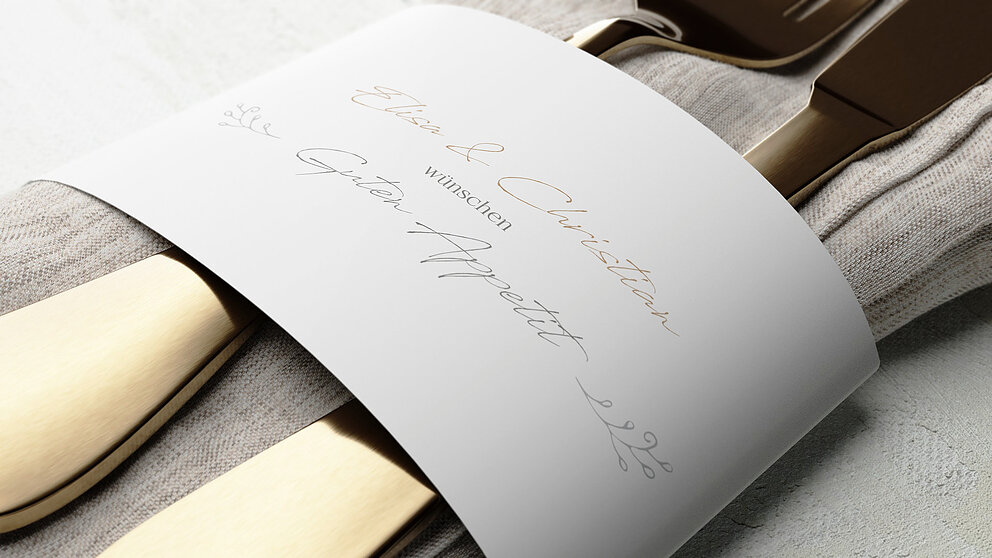 Elisa & Christian
wünschen
Guten Appetit